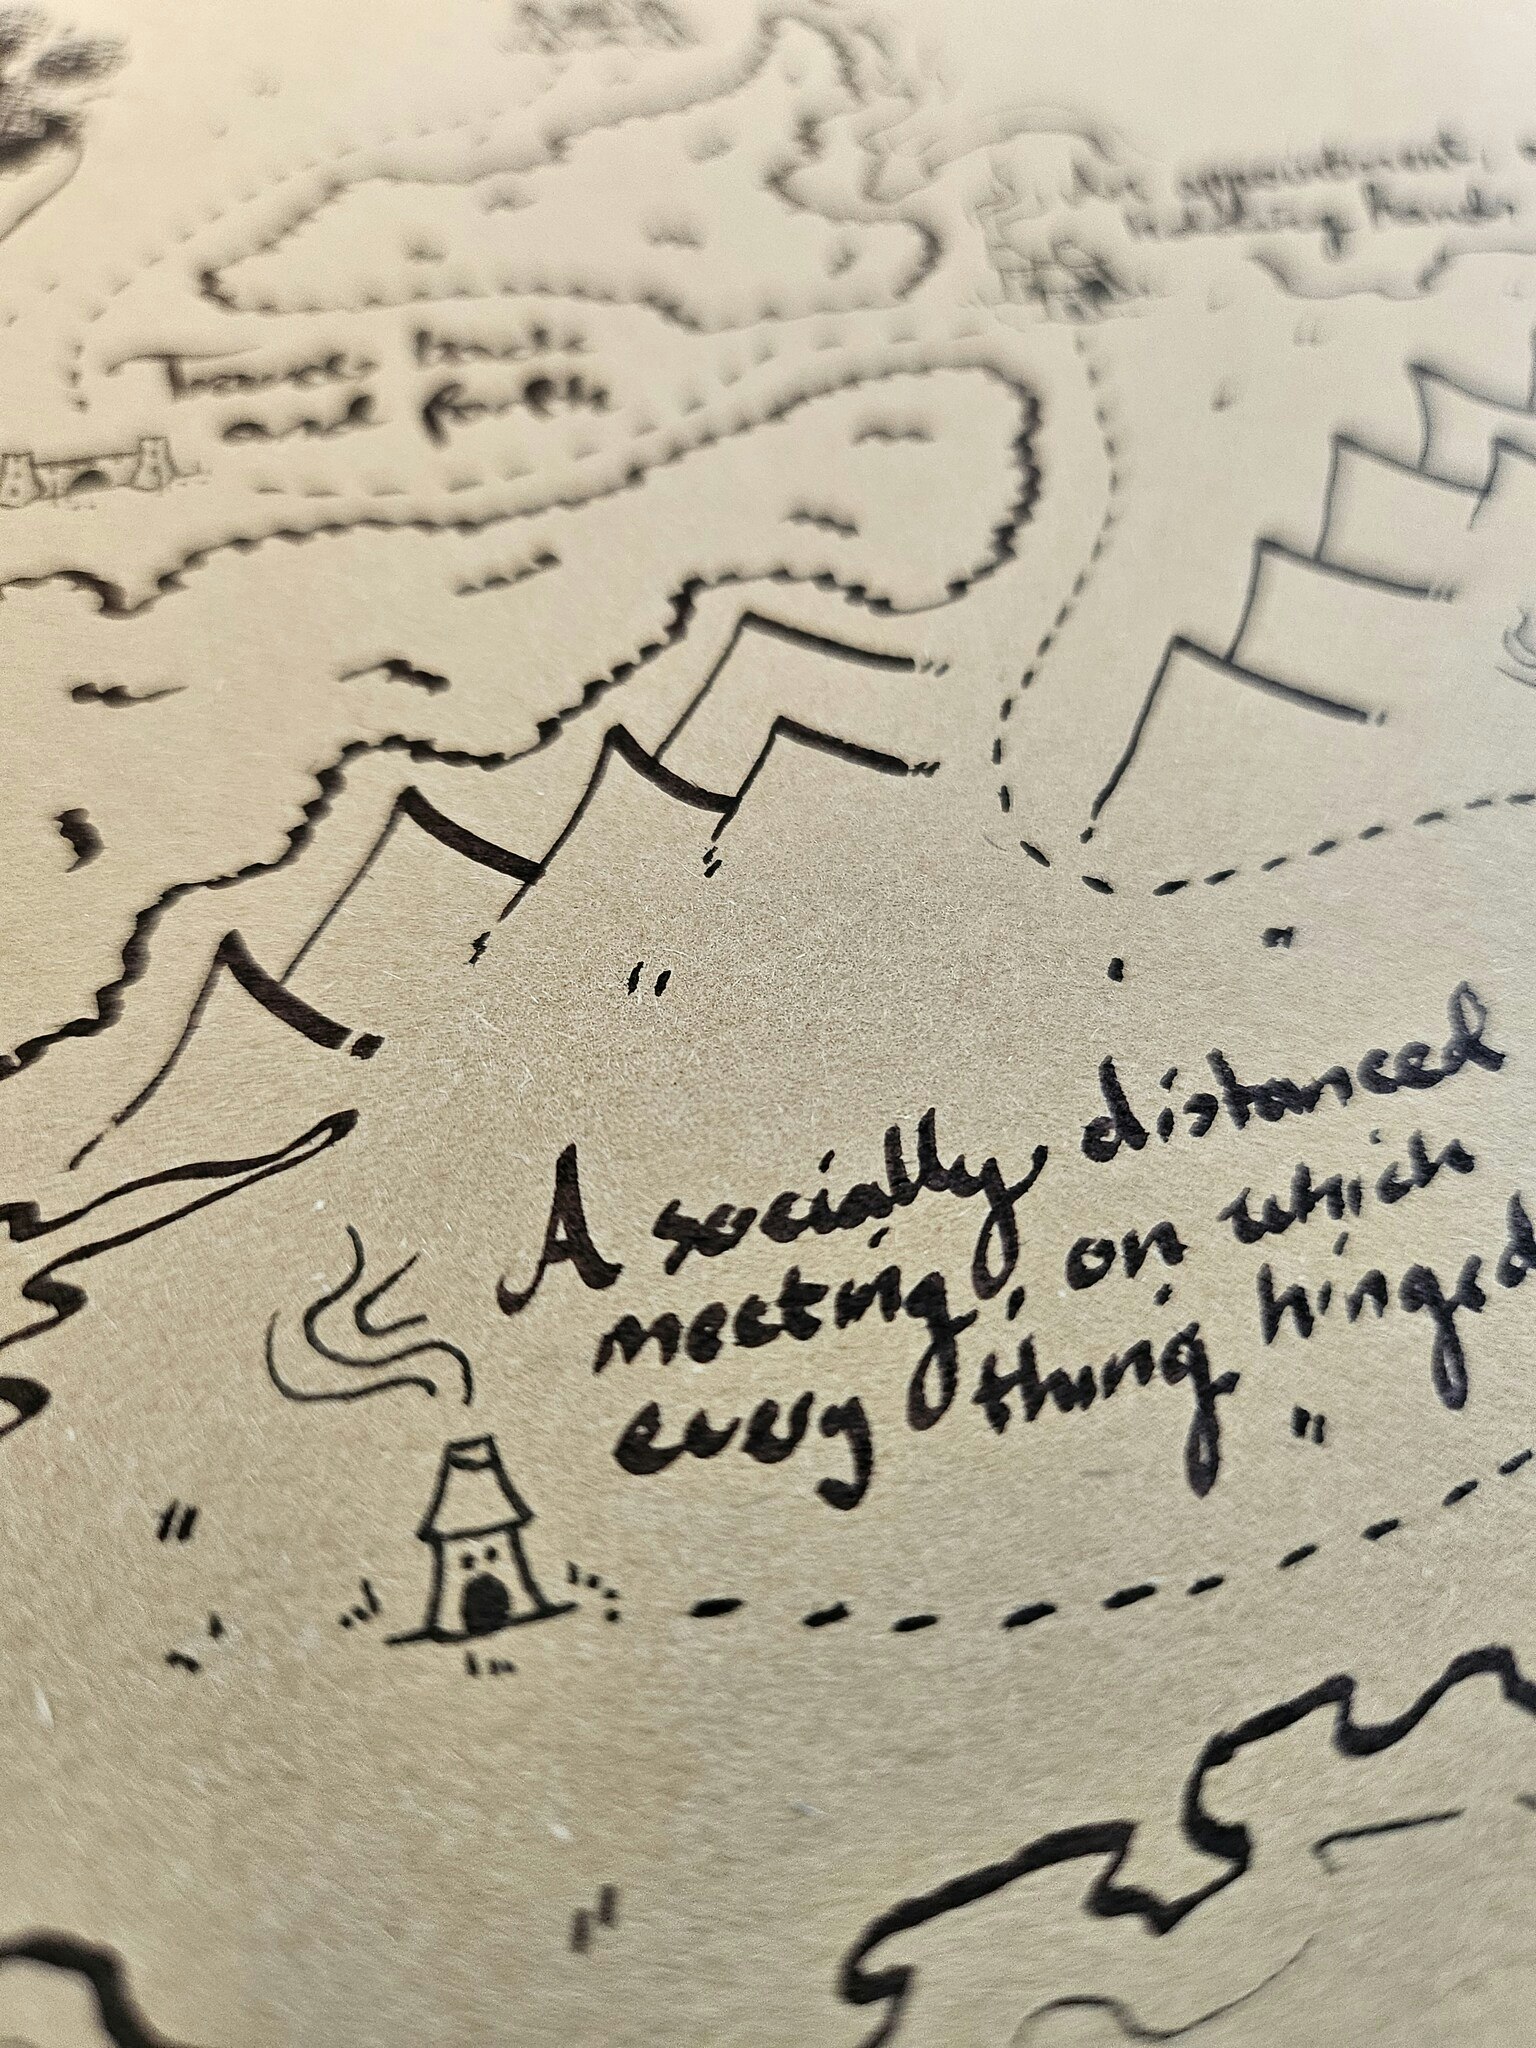 An appointment,
holding hands
Travels back
and forth
A socially distanced
meeting, on which
every thing hinged